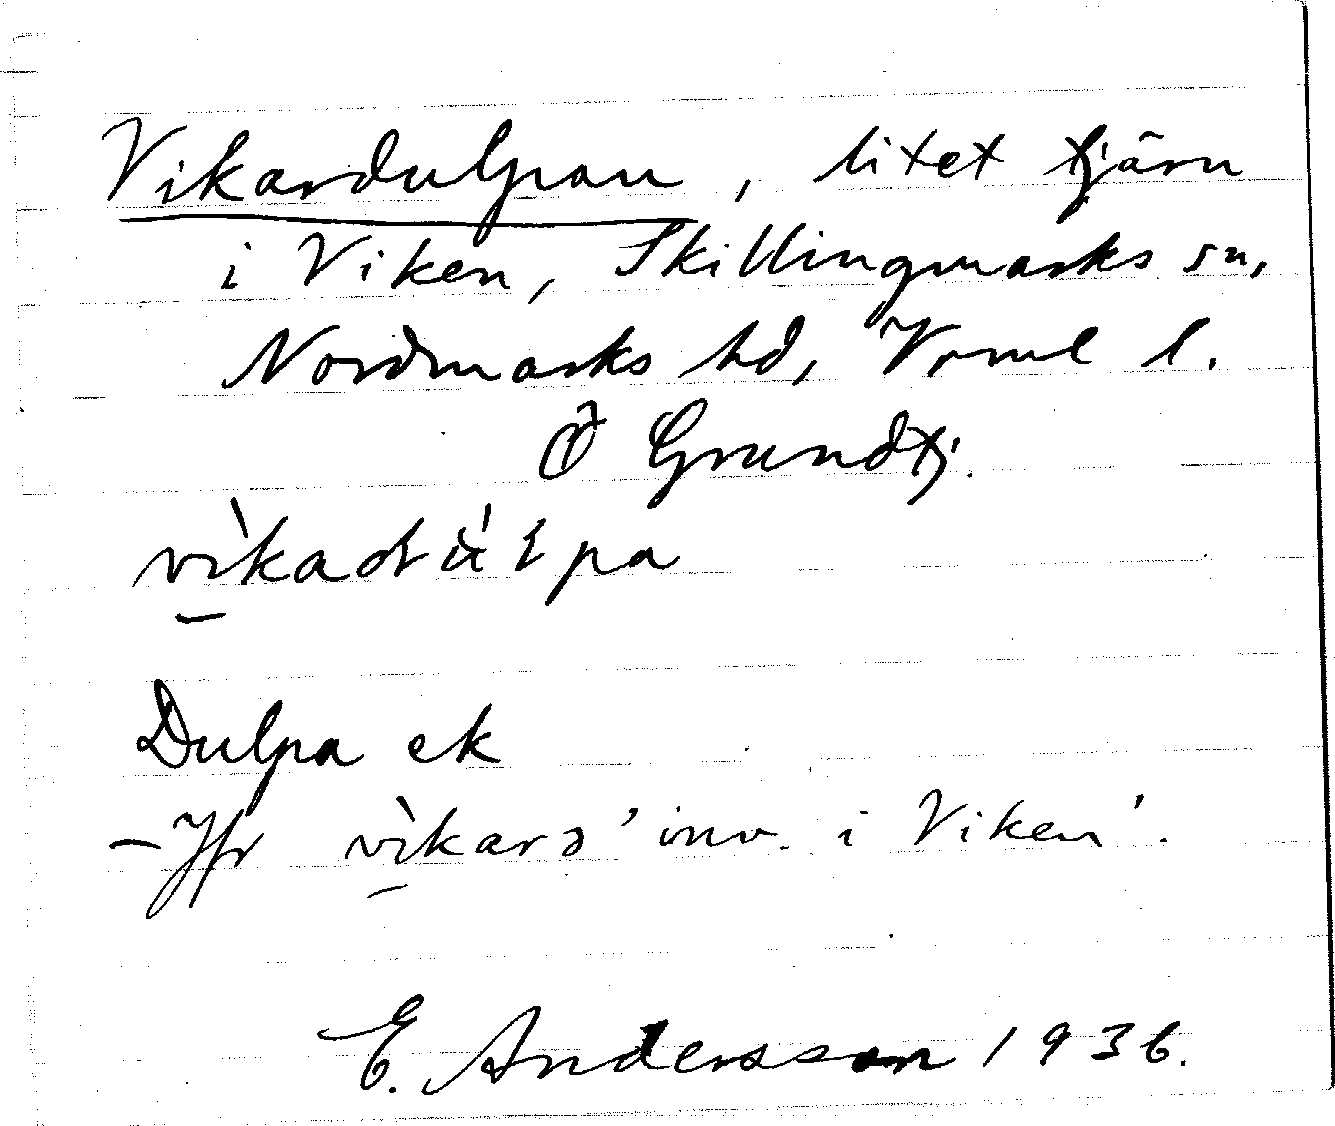 Vikardulpan, litet tjärn
i Viken, Skillingmarks sn,
Nordmarks hd, Vrml l.
Ö Grundtj.
vìkadúlpa
Dulpa ek
- Jfr vìkarə 'inv. i Viken'.
E. Andersson 1936.